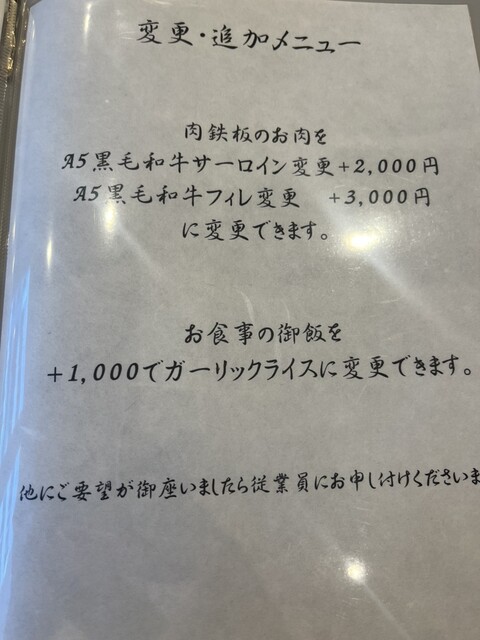 変更・追加メニュー
肉鉄板のお肉を
A5黒毛和牛サーロイン変更+2,000円
A5黒毛和牛フィレ変更 +3,000円
に変更できます。
お食事の御飯を
+1,000でガーリックライスに変更できます。
他にご要望が御座いましたら従業員にお申し付けくださいま